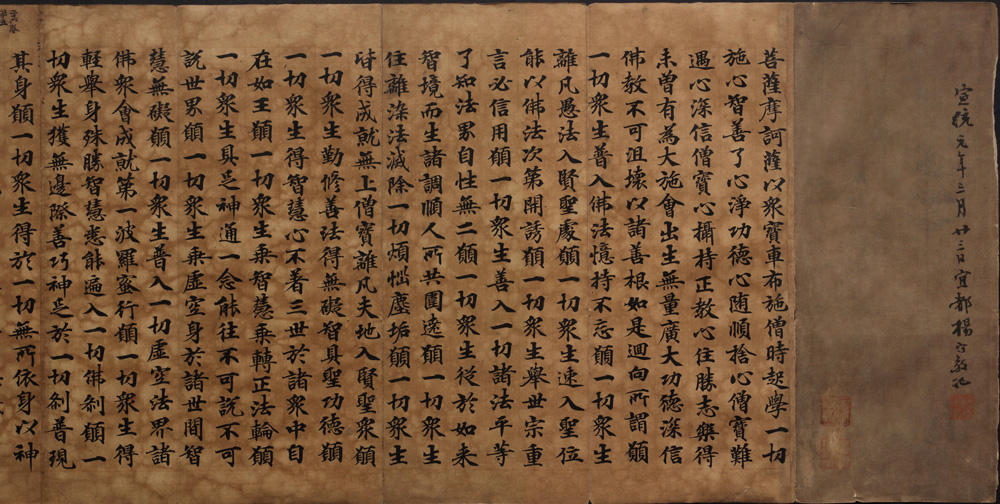 宣統元年三月廿三日宜都楊守敬記
菩薩摩訶薩以衆寶車布施僧時起學一切
施心智善了心淨功德心随順捨心僧寶難
遇心深信僧寶心攝持正教心住勝志樂得
未曾有為大施會出生無量廣大功德深信
佛教不可沮壞以諸善根如是迴向所謂願
一切衆生普入佛法憶持不忘願一切衆生
離凡愚法入賢聖處願一切衆生速入聖位
能以佛法次第開誘願一切衆生舉世宗重
言必信用願一切衆生善入一切諸法平等
了知法界自性無二願一切衆生從於如来
智境而生諸調順人所共圍遶願一切衆生
住離染法滅除一切煩惱塵垢願一切衆生
皆得成就無上僧寶離凡夫地入賢聖衆願
一切衆生勤修善法得無礙智具聖功德願
一切衆生得智慧心不著三世於諸衆中自
在如王願一切衆生乘智慧乘轉正法輪願
一切衆生具足神通一念能往不可説不可
説世界願一切衆生乘虚空身於諸世間智
慧無礙願一切衆生普入一切虚空法界諸
佛衆會成就第一波羅蜜行願一切衆生得
輕舉身殊勝智慧悉能遍入一切佛刹願一
切衆生獲無邊際善巧神足於一切刹普現
其身願一切衆生得於一切無所依身以神